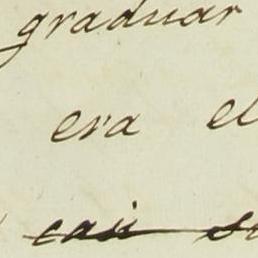 graduar
era el
casi